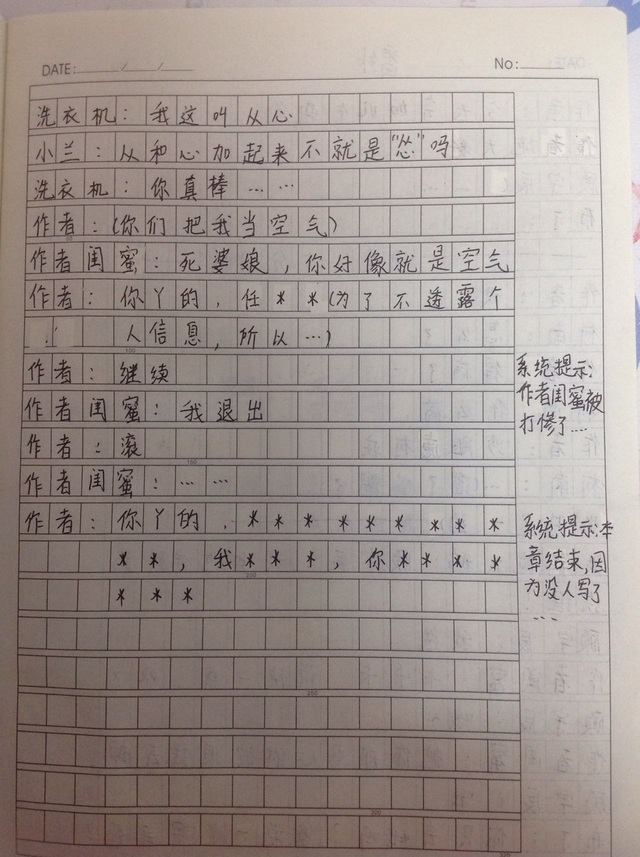 DATE: / /
No:
洗衣机：我这叫从心
小兰：从和心加起来不就是“怂”吗
洗衣机：你真棒……
作者：(你们把我当空气)
作者闺蜜：死婆娘，你好像就是空气
作者：你丫的，任**(为了不透露个
人信息，所以…)
作者：继续
作者闺蜜：我退出
作者：滚
作者闺蜜：……
作者：你丫的，********
**，我***，你****
***
系统提示:
作者闺蜜被
打修了…
系统提示:本
章结束,因
为没人写了
…